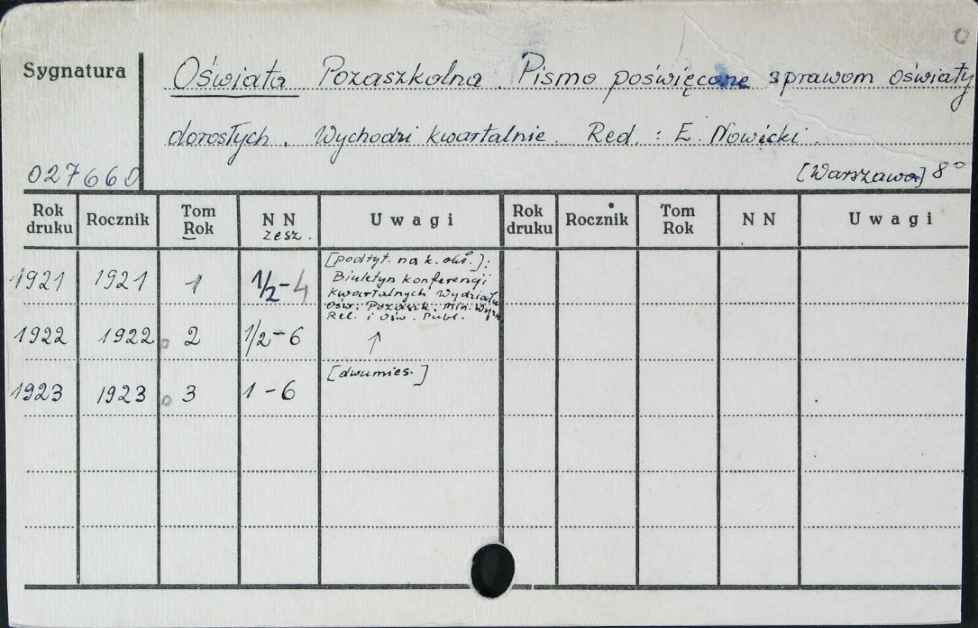 Sygnatura
Oświata Pozaszkolna. Pismo poświęcone sprawom oświaty
dorosłych. Wychodzi kwartalnie. Red.: E. Nowicki.
027660
[Warszawa] 8°
Rok druku Rocznik Tom Rok N N zesz. Uwagi Rok druku Rocznik Tom Rok N N Uwagi
[podtyt. na k. okł.]:
1921 1921 1 1/2-4 Biuletyn konferencji
kwartalnych Wydziału
Ośw. Pozaszk. Min. Wyzn.
Rel. i Ośw. Publ.
1922 1922 2 1/2-6 ↑
[dwumies.]
1923 1923 3 1-6